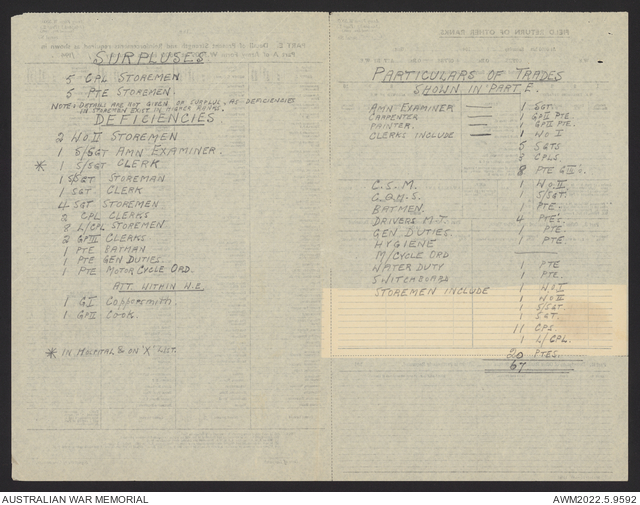 SURPLUSES
5 CPL STOREMEN
5 PTE STOREMEN
NOTE:- DETAILS ARE NOT GIVEN OF SURPLUS, AS DEFICIENCIES
IN STOREMEN EXIST IN HIGHER RANKS.
DEFICIENCIES
2 WO II STOREMEN
1 S/SGT AMN EXAMINER.
* 1 S/SGT CLERK
1 S/SGT STOREMAN
1 SGT. CLERK
4 SGT STOREMEN
2 CPL CLERKS
8 L/CPL STOREMEN
2 GP III CLERKS
1 PTE BATMAN
1 PTE GEN DUTIES.
1 PTE MOTOR CYCLE ORD.
ATT. WITHIN W.E.
1 GI COPPERSMITH
1 GP II COOK.
* IN HOSPITAL & ON 'X' LIST.
PARTICULARS OF TRADES
SHOWN IN PART E.
AMN EXAMINER — 1 SGT.
CARPENTER — 1 GP II PTE.
PAINTER. — 1 GP II PTE.
CLERKS INCLUDE — 1 WO I
5 SGTS
8 CPLS
8 PTE
C.S.M. 1 WO II
C.Q.M.S. 1 S/SGT.
BATMEN. 1 PTE.
DRIVERS M.T. 4 PTE'S.
GEN DUTIES. 1 PTE.
HYGIENE 1 PTE
M/CYCLE ORD —
WATER DUTY 1 PTE
SWITCHBOARD 1 PTE.
STOREMEN INCLUDE 1 WO I
1 WO II
1 S/SGT
1 SGT
11 CPS
1 L/CPL.
20 PTES.
67
AUSTRALIAN WAR MEMORIAL
AWM2022.5.9592